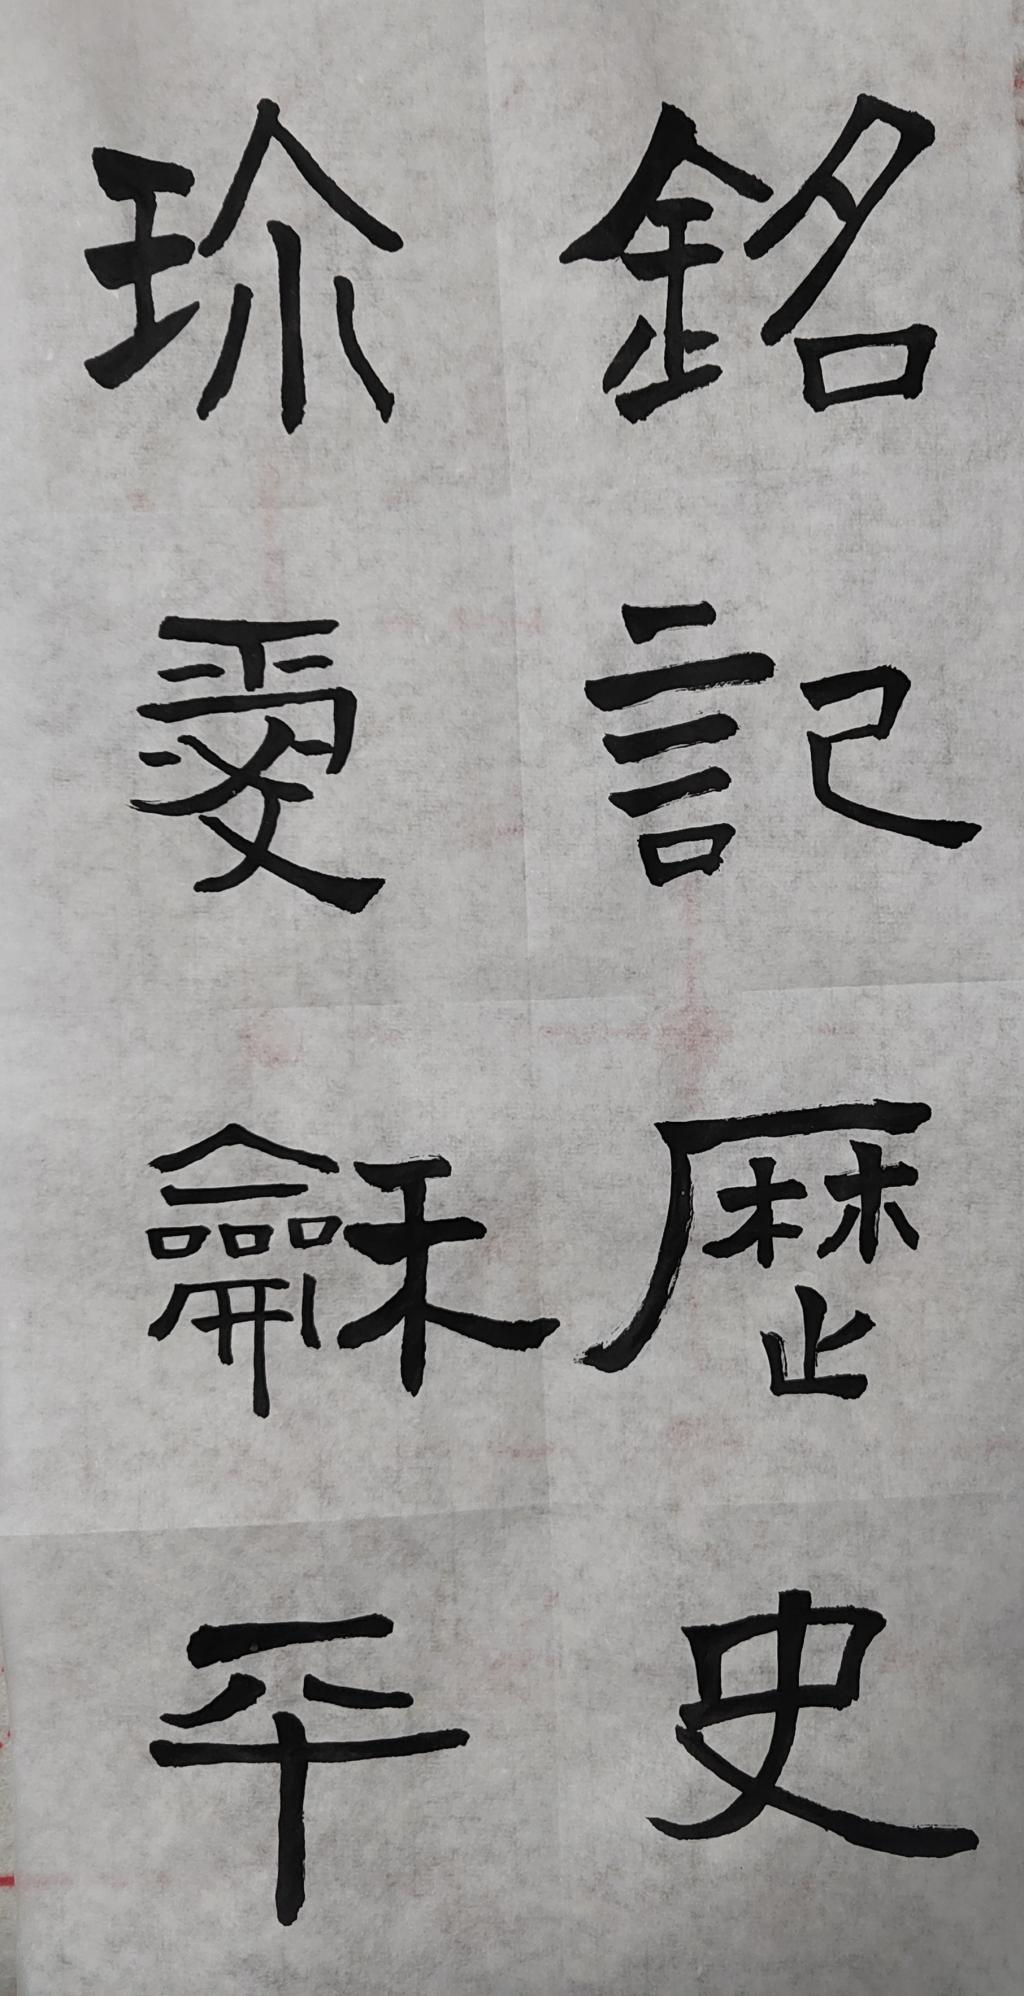 銘記歷史
珎愛龢平